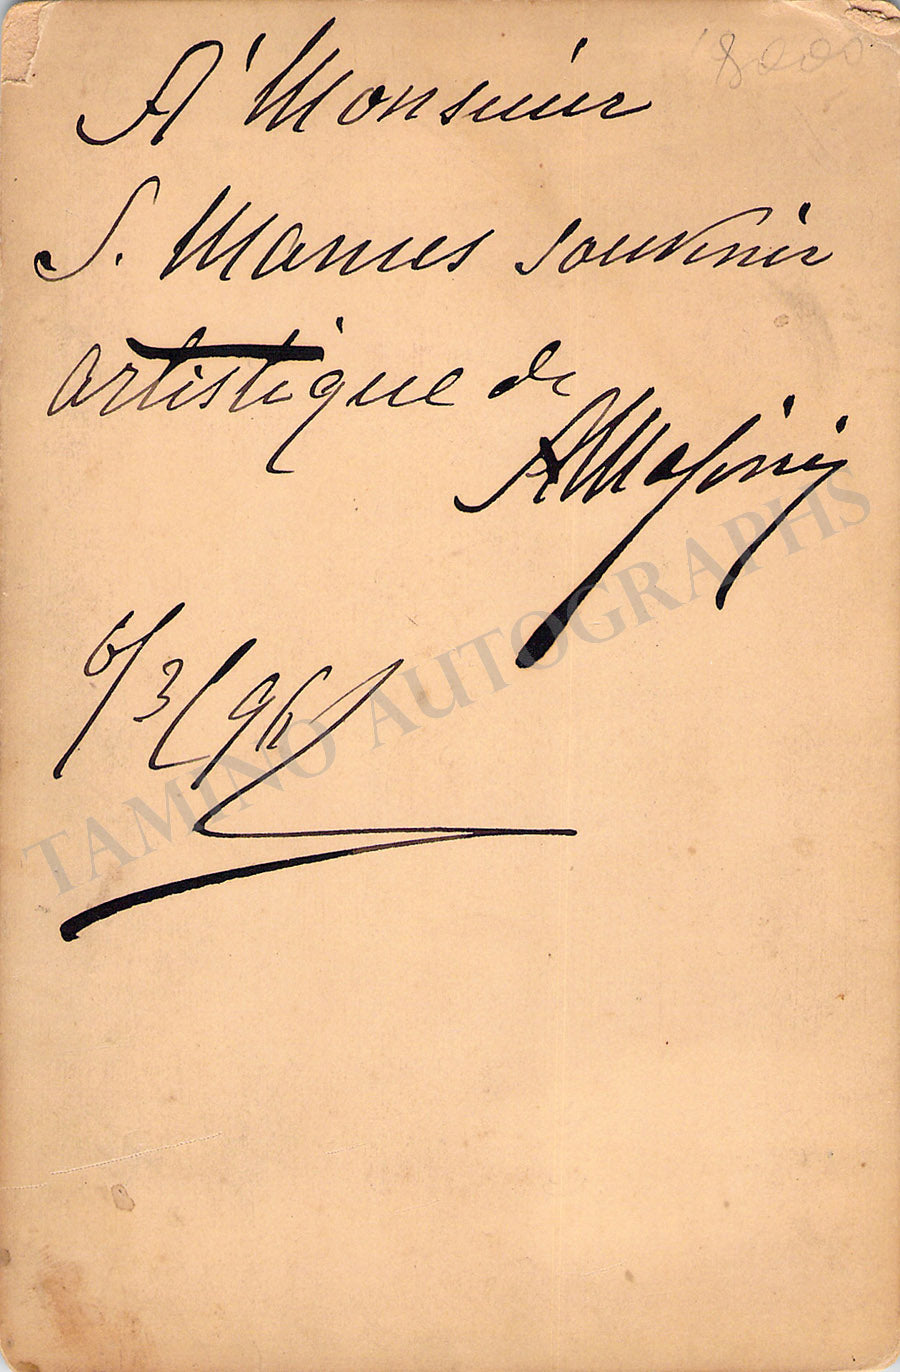 A' Monsieur
8000
S. Mames souvenir
artistique de
AMasini
6/3/96
TAMINO AUTOGRAPHS